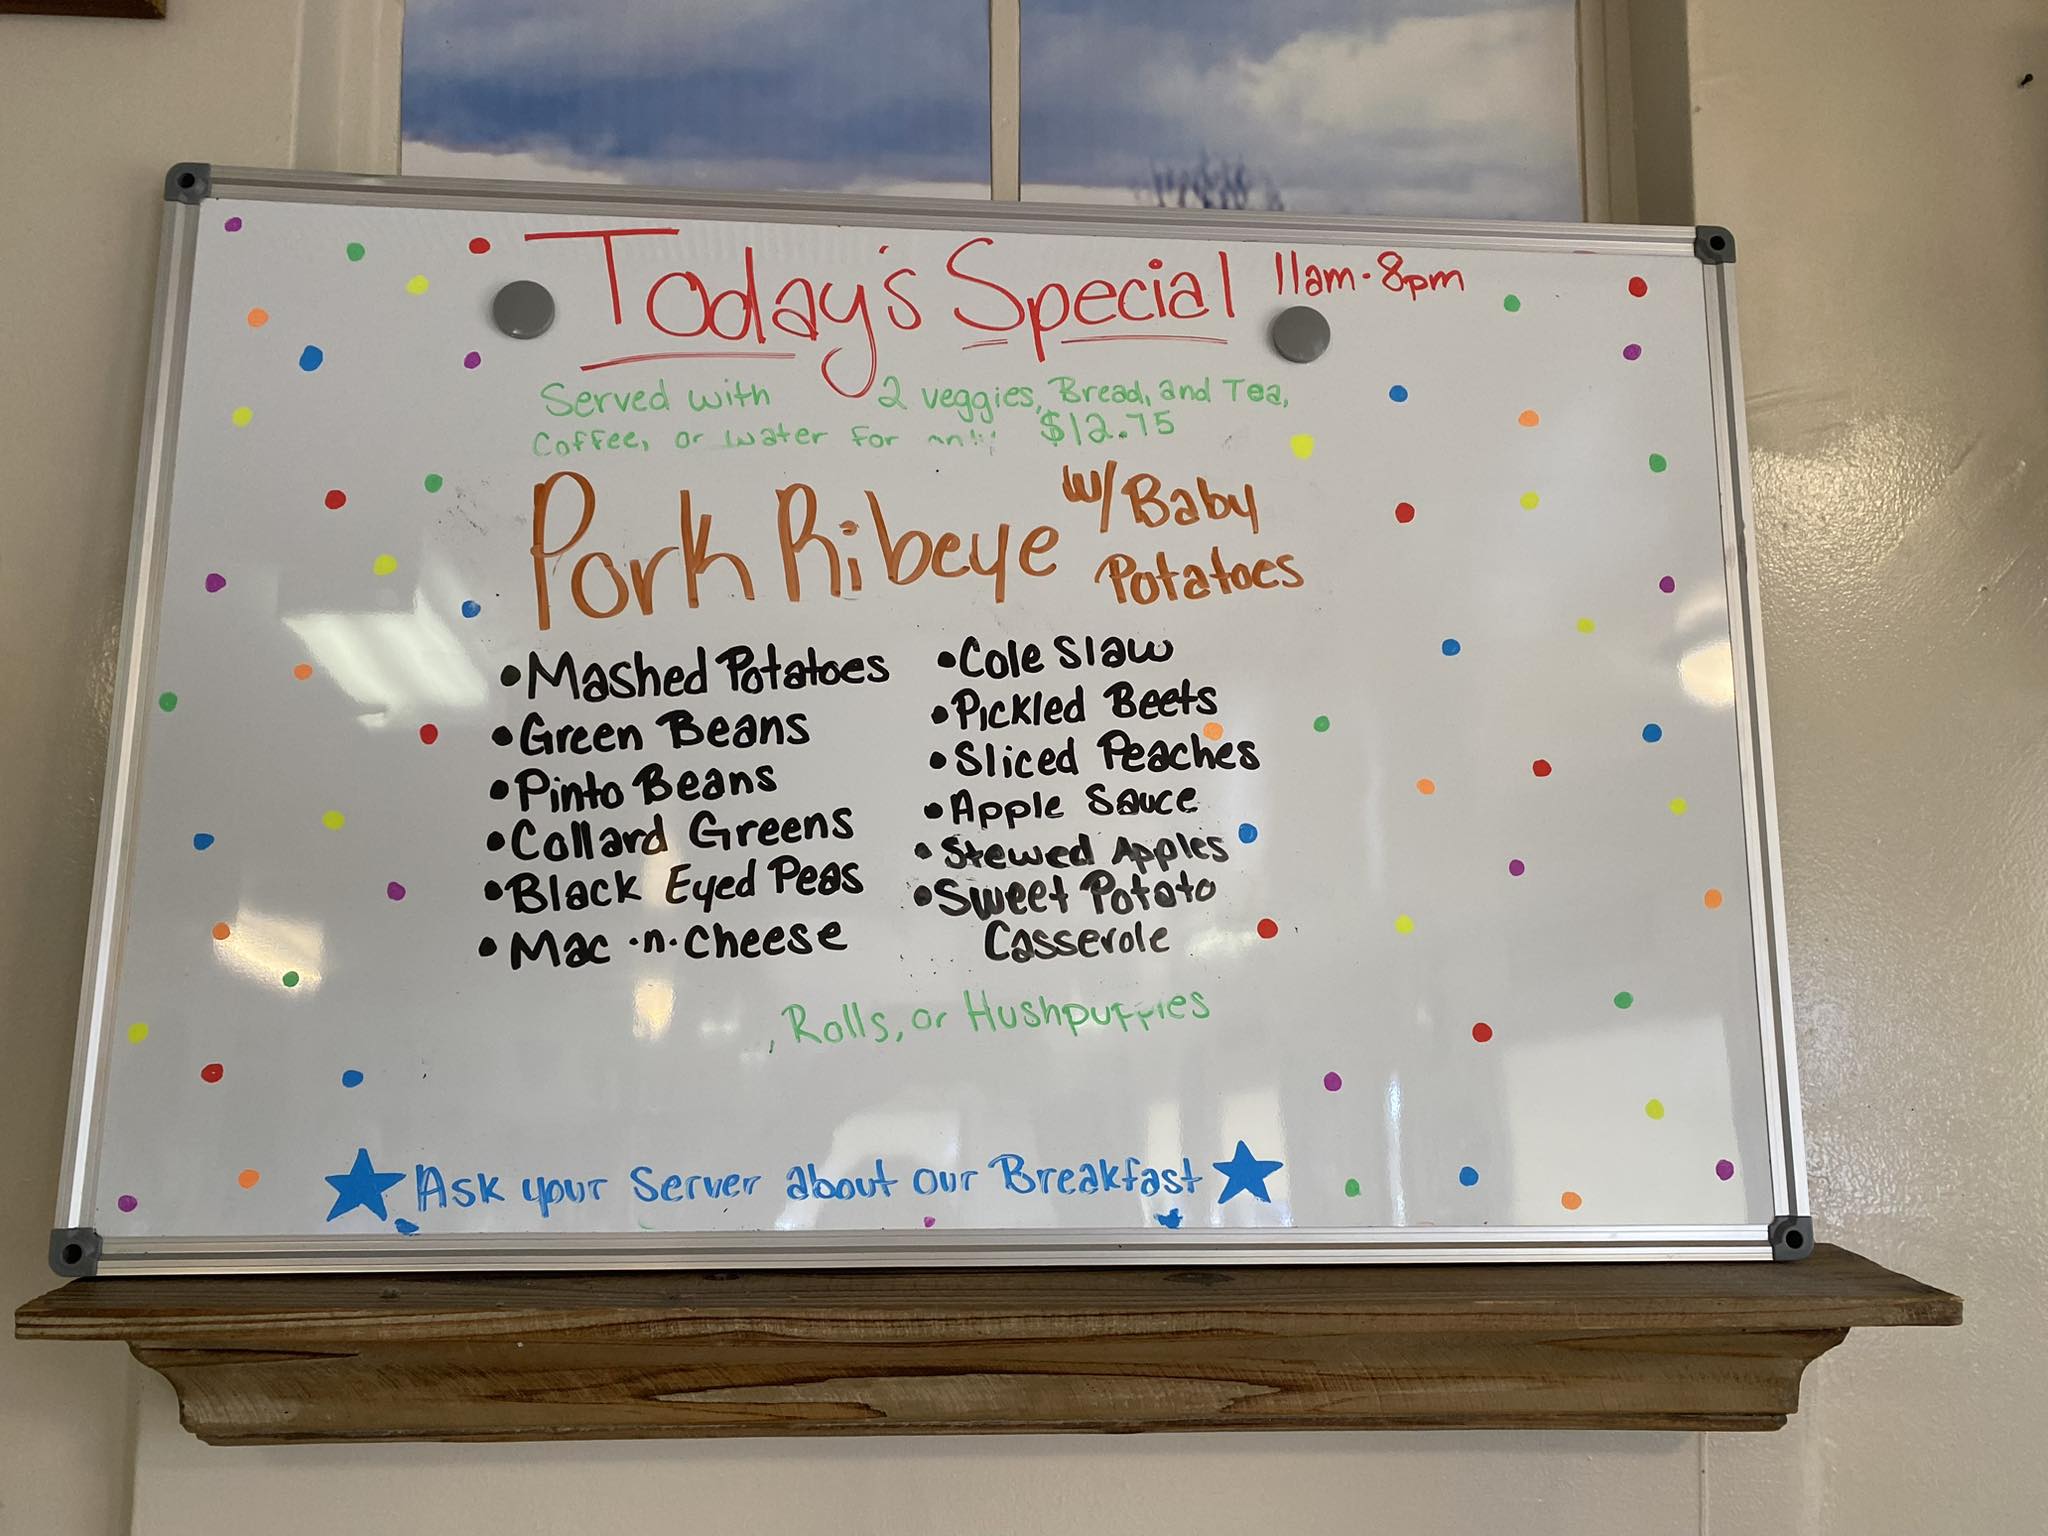 Today's Special 11am-8pm
Served with 2 veggies, Bread, and Tea,
Coffee, or water for only $12.75
Pork Ribeye w/ Baby
Potatoes
• Mashed Potatoes
• Green Beans
• Pinto Beans
• Collard Greens
• Black Eyed Peas
• Mac -n- Cheese
• Cole Slaw
• Pickled Beets
• Sliced Peaches
• Apple Sauce
• Stewed Apples
• Sweet Potato
Casserole
, Rolls, or Hushpuppies
★ Ask your Server about our Breakfast ★